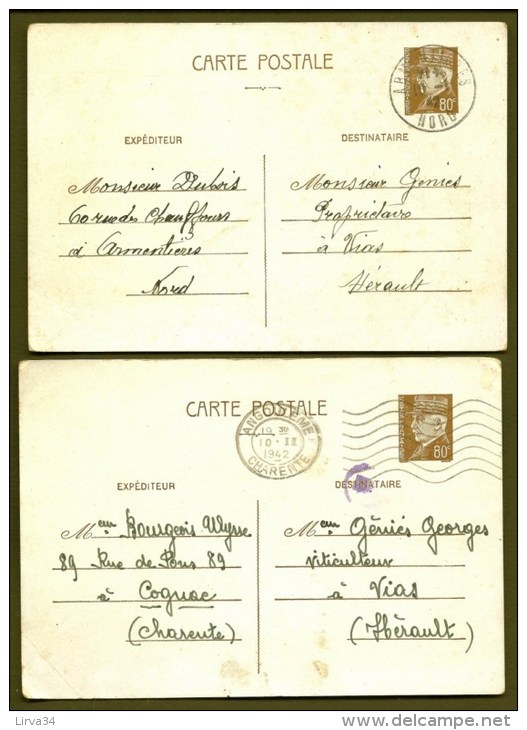 CARTE POSTALE
ARMENTIÈRES
NORD
80c
EXPÉDITEUR
DESTINATAIRE
Monsieur Dubois
60 rue des Chauffours
à Armentières
Nord
Monsieur Geniés
Propriétaire
à Vias
Hérault
CARTE POSTALE
ANGOULEME
19 30
10 - II
1942
CHARENTE
80c
EXPÉDITEUR
DESTINATAIRE
Meur Bourgeois Ulysse
89 Rue de Pons 89
à Cognac
(Charente)
Meur Géniés Georges
viticulteur
à Vias
(Hérault)
Lirva34
www.delcampe.net